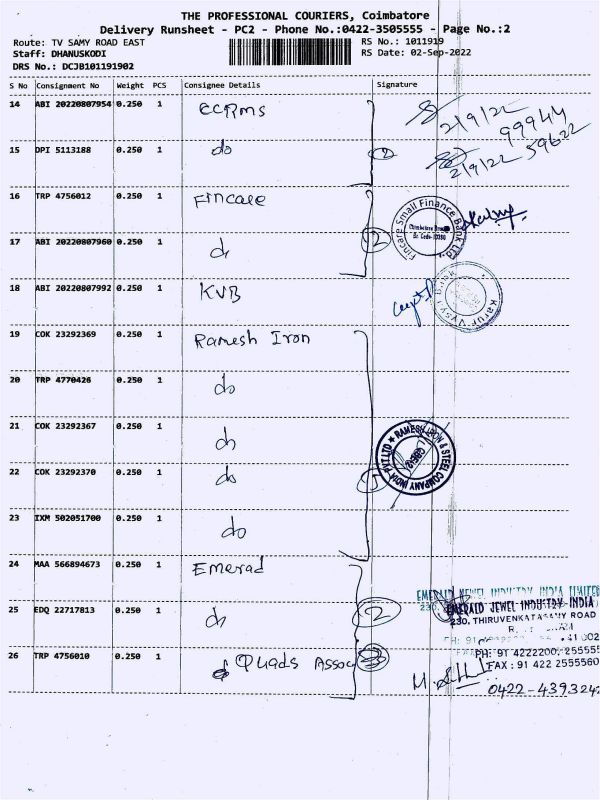 THE PROFESSIONAL COURIERS, Coimbatore
Delivery Runsheet - PC2 - Phone No.:0422-3505555 - Page No.:2
Route: TV SAMY ROAD EAST RS No.: 1011919
Staff: DHANUSKODI RS Date: 02-Sep-2022
DRS No.: DCJB101191902
S No Consignment No Weight PCS Consignee Details Signature
14 ABI 20220807954 0.250 1 ECRMS
2/9/22
99944
15 DPI 5113188 0.250 1 do 2
2/9/22 59622
16 TRP 4756012 0.250 1 Fincare
Fincare Small Finance Bank Ltd
17 ABI 20220807960 0.250 1 do 2
18 ABI 20220807992 0.250 1 KVB
Karur Vysya Bank
19 COK 23292369 0.250 1 Ramesh Iron
20 TRP 4770426 0.250 1 do
21 COK 23292367 0.250 1 do
RAMESH IRON & STEEL COMPANY INDIA PVT LTD
22 COK 23292370 0.250 1 do 5
23 IXM 502051700 0.250 1 do
24 MAA 566894673 0.250 1 Emerad
EMERALD JEWEL INDUSTRY INDIA LIMITED
25 EDQ 22717813 0.250 1 do 2
EMERALD JEWEL INDUSTRY INDIA
230, THIRUVENKATASAMY ROAD
26 TRP 4756010 0.250 1 Quads Assoc
PH: 91 4222200, 255555
FAX : 91 422 2555560
0422-4393242